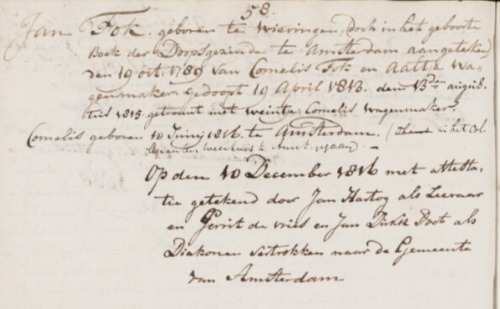 58.
Jan Fok. geboren te Wieringen, Doch in het geboorte
Boek der Dorpsgezinde te Amsterdam aangeteken
den 19 oct. 1789 van Cornelis Fok en Aattie Wa-
genmaker gedoopt 19 April 1813. den 13den augus-
tus 1815 getrouwt met Weintje Cornelis Wagenmaker
Cornelis geboren 10 Junij 1816 te Amsterdam. (
Op den 10 December 1816 met attesta-
tie getekend door Jan Hartog als Leeraar
en Gerrit de vries en Jan Dirksz Poot als
Diakonen vertrokken naar de Gemeente
van Amsterdam